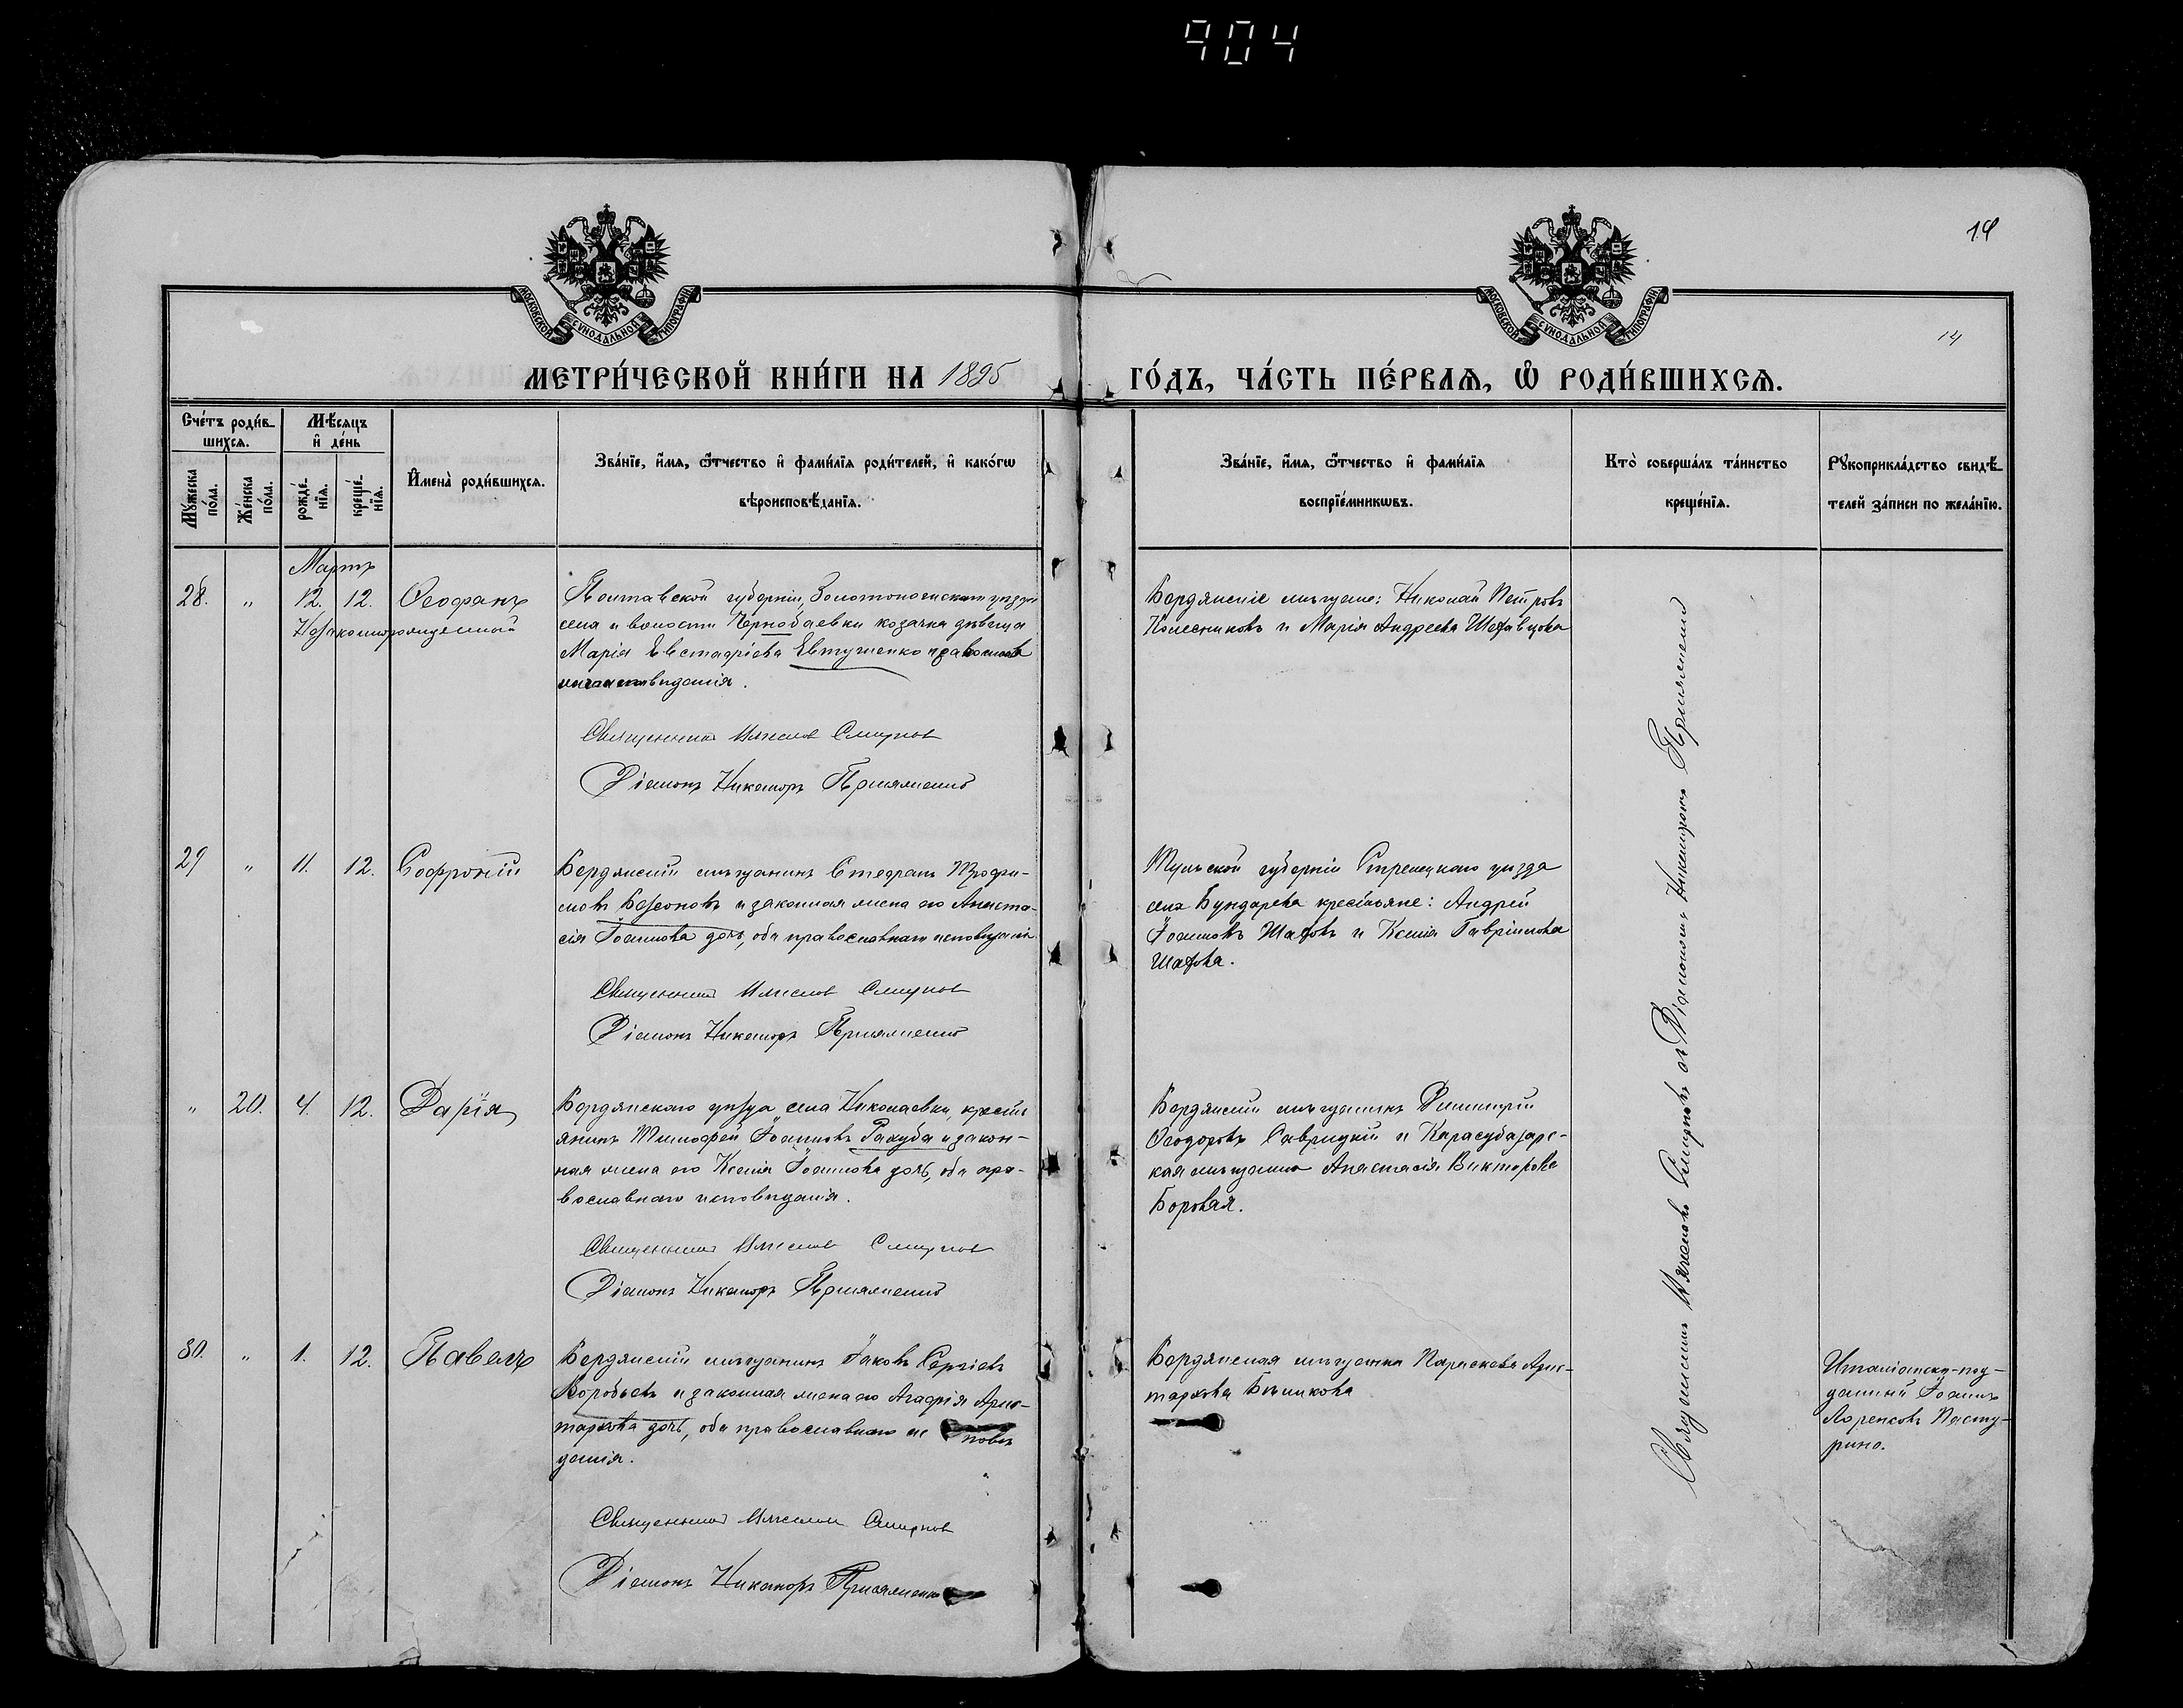 904
19
14
МОСКОВСКОЙ СѴНОДАЛЬНОЙ ТИПОГРАФІИ
МОСКОВСКОЙ СѴНОДАЛЬНОЙ ТИПОГРАФІИ
МЕТРИ́ЧЕСКОЙ КНИ́ГИ НА 1895 ГО́ДЪ, ЧА́СТЬ ПЕ́РВАѦ, Ѡ РОДИ́ВШИХСѦ.
Сче́тъ роди́в-
шихсѧ.
Мꙋ́жеска
по́ла.
Же́нска
по́ла.
Мѣ́сяцъ
и҆ де́нь
рожде́-
нїѧ.
креще́-
нїѧ.
И҆мена̀ роди́вшихсѧ.
Зва́нїе, и҆́мѧ, ѻ҆́тчество и҆ фами́лїѧ роди́телей, и҆ како́гѡ
вѣроисповѣ́данїѧ.
Зва́нїе, и҆́мѧ, ѻ҆́тчество и҆ фами́лїѧ
воспрїе́мникѡвъ.
Кто̀ соверша́лъ та́инство
креще́нїѧ.
Рꙋкоприкла́дство свидѣ́-
телей за́писи по жела́нїю.
Мартъ
28. " 12. 12. Ѳеофанъ
Незаконнорожденный
Полтавской губерніи, Золотоношскаго уѣзда
села и волости Чернобаевки козачка дѣвица
Марія Евстафіева Евтушенко православ
исповѣданія.
Священникъ Смирнов
Діаконъ Никаноръ Присяженко
Бердянскіе мѣщане: Николай Петровъ
Колесниковъ и Марія Андреева Шевцова
29 " 11. 12. Софроній
Бердянскій мѣщанинъ Стефанъ Трофи-
мовъ и законная жена его Анаста-
сія Іоаннова дочь, оба православнаго исповѣданія
Священникъ Смирнов
Діаконъ Никаноръ Присяженко
Тульской губерніи уѣзда
села крестьяне: Андрей
Іоанновъ и Ксенія Гавріилова
" 20. 4. 12. Дарія
Бердянскаго уѣзда, села Николаевки, кресть
янинъ Тимофей Іоанновъ Ракуба и закон-
ная жена его Ксенія Іоаннова дочь, оба пра-
вославнаго исповѣданія.
Священникъ Смирнов
Діаконъ Никаноръ Присяженко
Бердянскій мѣщанинъ Димитрій
Ѳеодоровъ Саврицкій и Карасубазарс-
кая мѣщанка Анастасія Викторова
Боровая.
30. " 1. 12. Павелъ
Бердянскій мѣщанинъ Іаковъ Сергіевъ
Воробьевъ и законная жена его Агафія Арис-
тархова дочь, оба православнаго ис повѣ
данія.
Священникъ Смирнов
Діаконъ Никаноръ Присяженко
Бердянская мѣщанка Параскева Арис-
тархова
Итальянско-под-
данный Іоаннъ
Лоренсовъ Пасту-
рино.
Священникъ Смирновъ съ Діакономъ Никаноромъ Присяженко